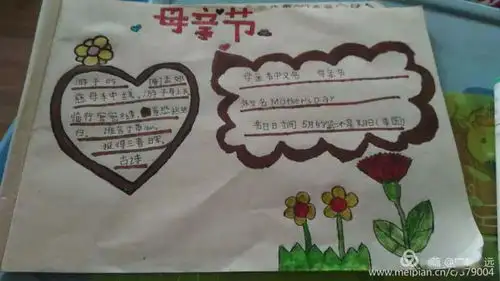 母亲节
游子吟 [唐]孟郊
慈母手中线,游子身上衣
临行密密缝,意恐迟迟
归。谁言寸草心,
报得三春晖。
古诗
母亲节中文名 母亲节
外文名 Mother's Day
节日时间 5月的第二个星期日(美国)
www.meipian.cn/c/379004